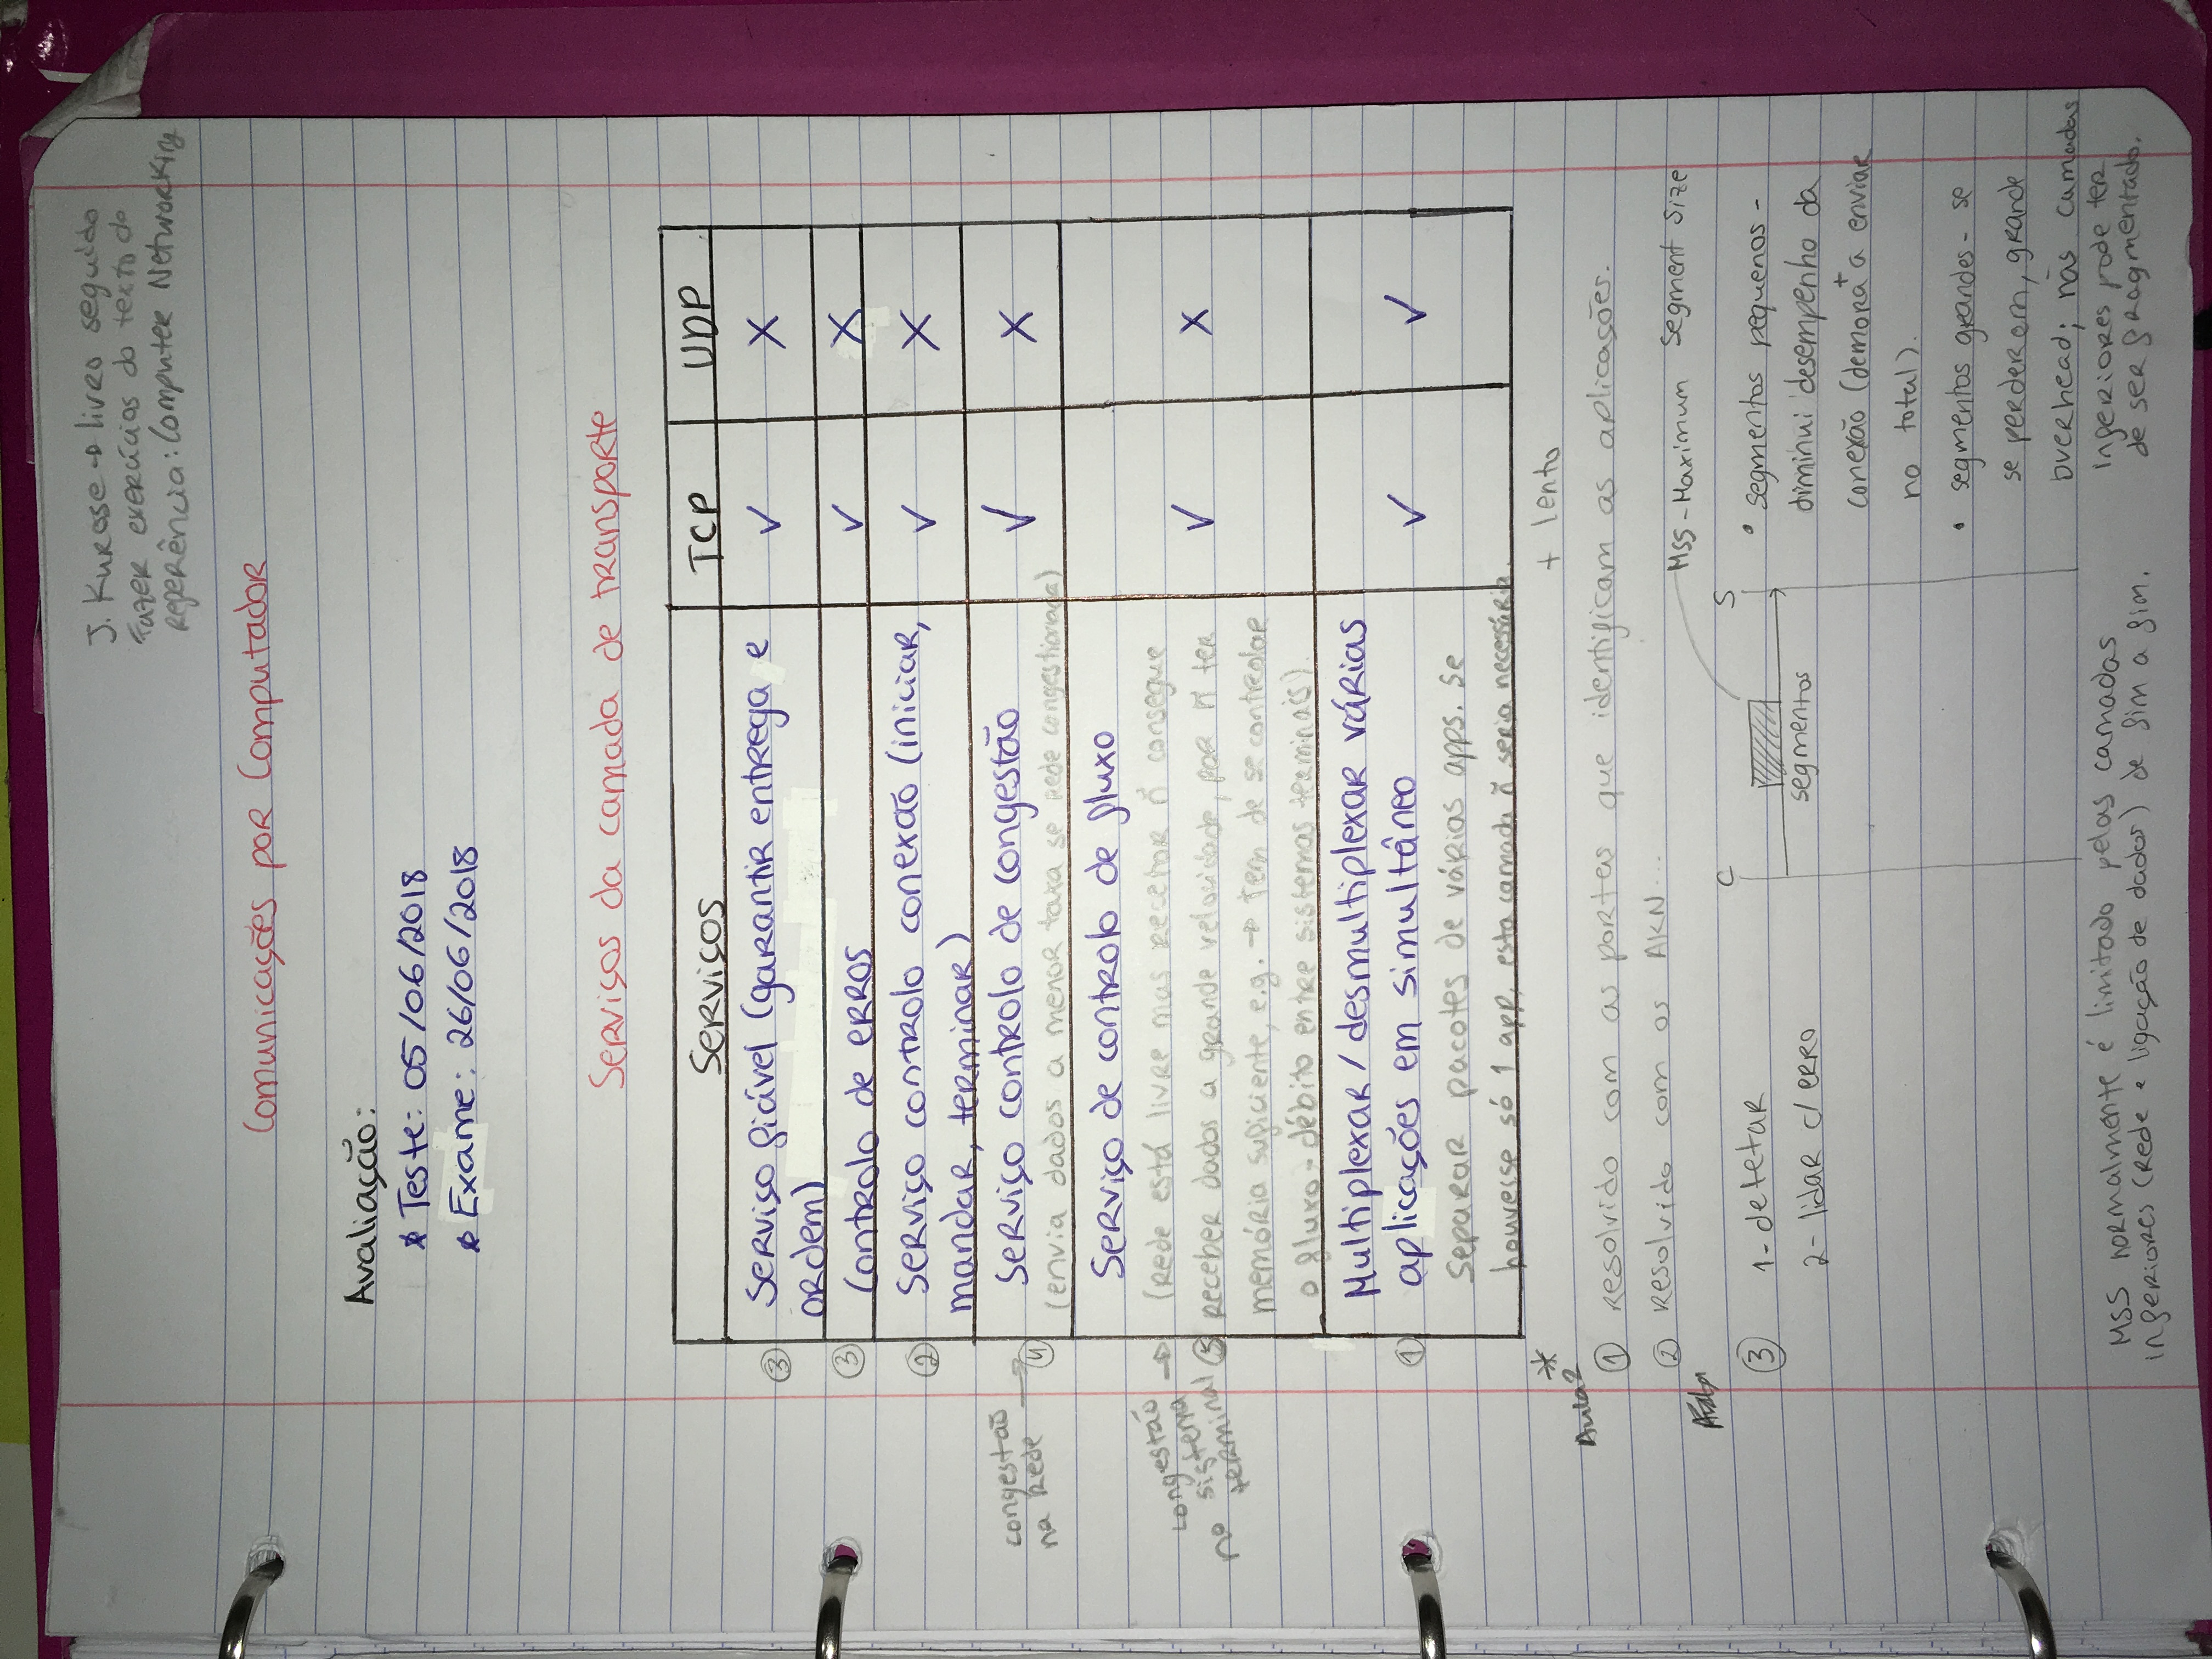 J. Kurose → livro seguido
Fazer exercícios do texto de
referência: Computer Networking
Comunicações por Computador
Avaliação:
* Teste: 05/06/2018
* Exame: 26/06/2018
Serviços da camada de transporte
Serviços TCP UDP
③ Serviço fiável (garantir entrega e ✓ X
ordem)
③ Controlo de erros ✓ X
② Serviço controlo conexão (iniciar, ✓ X
mandar, terminar)
congestão
na rede →
④ Serviço controlo de congestão ✓ X
(envia dados a menor taxa se rede congestionada)
Serviço de controlo de fluxo
congestão →
no sistema
terminal
(Rede está livre mas recetor ñ consegue
⑤ receber dados a grande velocidade, por ñ ter ✓ X
memória suficiente, e.g. → tem de se controlar
o fluxo - débito entre sistemas terminais).
Multiplexar / desmultiplexar várias
① aplicações em simultâneo ✓ ✓
Separar pacotes de várias apps. Se
houvesse só 1 app, esta camada ñ seria necessária.
*
+ lento
Aula 2
① Resolvido com as portas que identificam as aplicações.
② Resolvido com os AKN...
MSS - Maximum Segment Size
C S
③ 1- detetar
2- lidar c/ erro
segmentos
• segmentos pequenos -
diminui desempenho da
conexão (demora + a enviar
no total).
• segmentos grandes - se
se perderem, grande
overhead; nas camadas
inferiores pode ter
de ser fragmentado.
MSS normalmente é limitado pelas camadas
inferiores (rede e ligação de dados) de fim a fim.